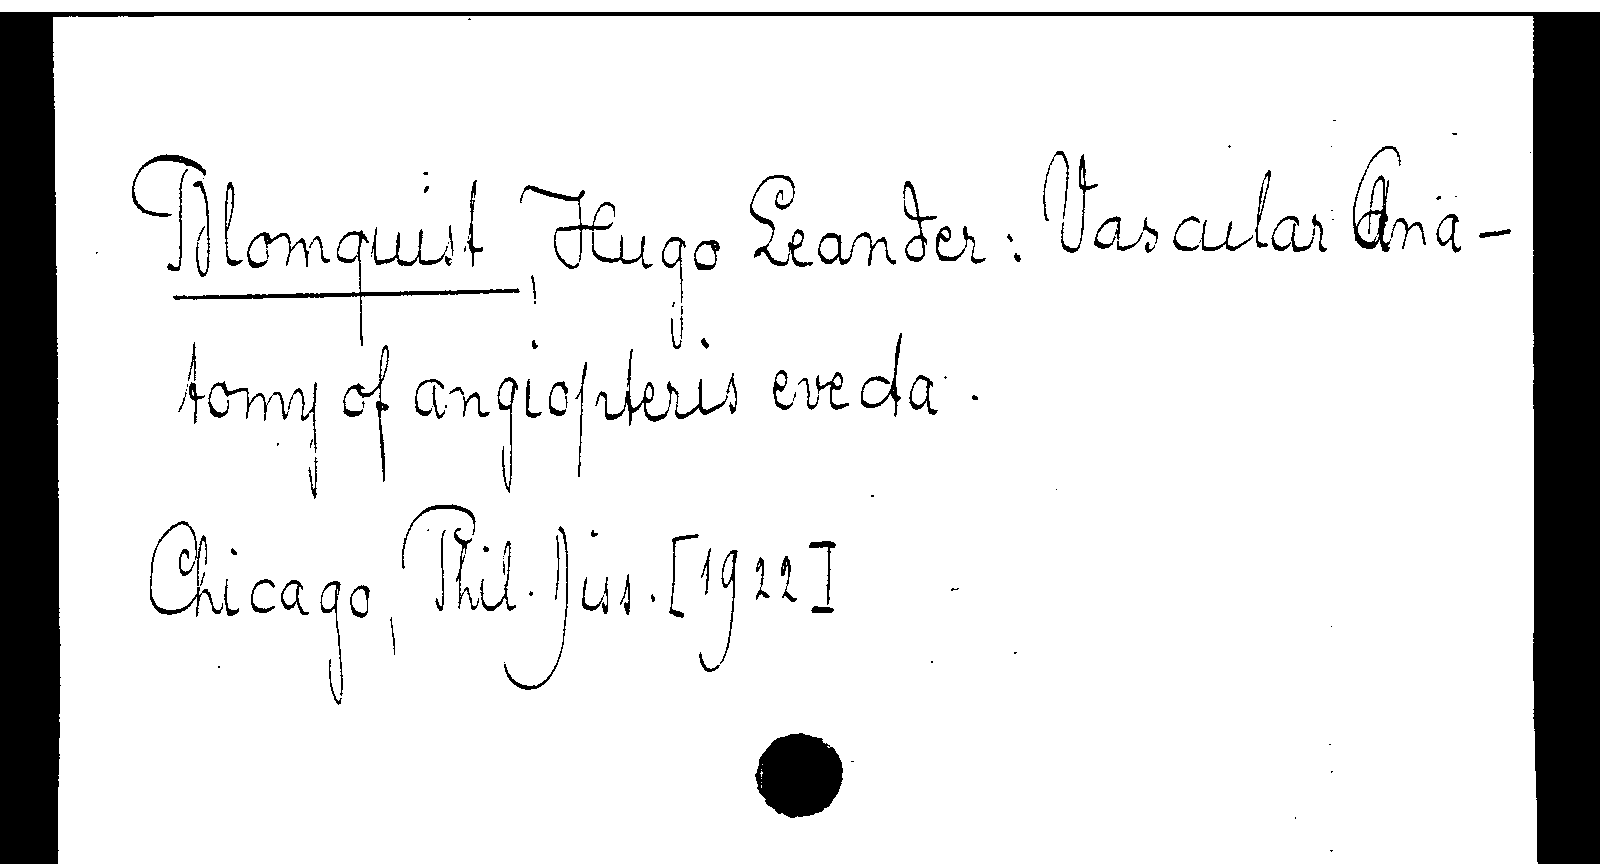 Blomquist, Hugo Leander: Vascular Ana-
tomy of angiopteris evecta.
Chicago, Phil. Diss. [1922]